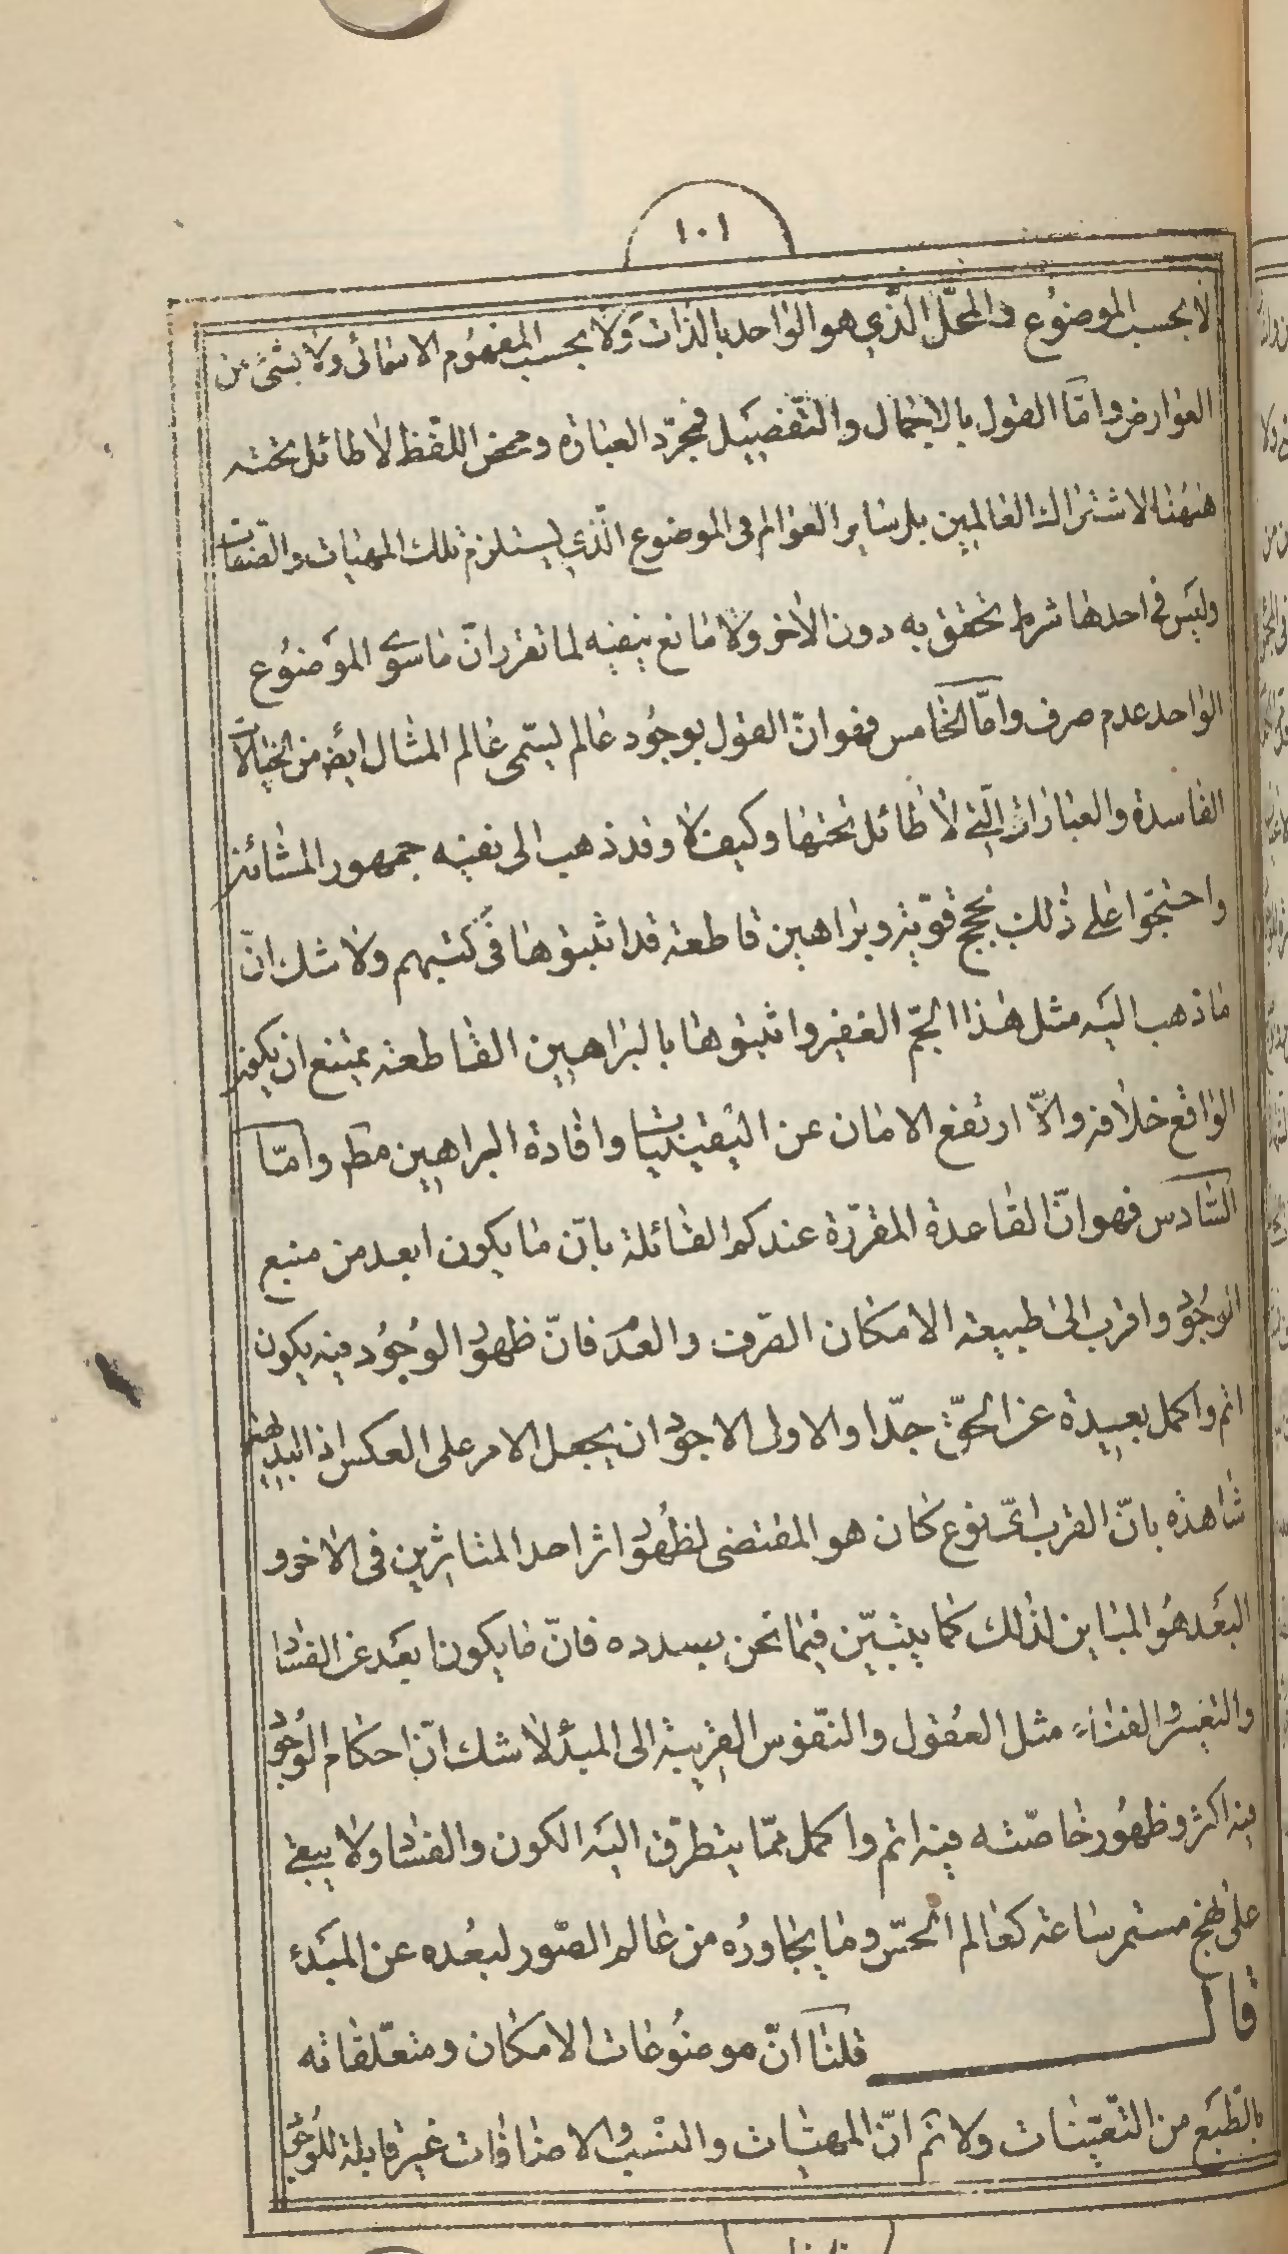 ١٠١
لا بحسب الموضوع والمحل الذي هو الواحد بالذات ولا بحسب المفهوم الاسمائى ولا بشئ من
العوارض واما القول بالاجمال والتفصيل فمجرد العبارة ومحض اللفظ لا طائل تحته
هنهنا لاشتراك العالمين بل ساير العوالم فى الموضوع الذي يستلزم تلك المهيات والصفات
وليس في احدها شرط تحقق به دون الاخر ولا مانع ينفيه لما تقرر ان ما سوى الموضوع
الواحد عدم صرف واما الخامس فهو ان القول بوجود عالم يسمى عالم المثال ايض من الخيالات
الفاسدة والعبارات التي لا طائل تحتها وكيف لا وقد ذهب الى نفيه جمهور المشائين
واحتجوا على ذلك بحجج قوية وبراهين قاطعة قد اثبتوها في كتبهم ولا شك ان
ما ذهب اليه مثل هذا الجم الغفير واثبتوها بالبراهين القاطعة يمتنع ان يكون
الواقع خلافه والا ارتفع الامان عن اليقينيات وافادة البراهين مط واما
السادس فهو ان القاعدة المقررة عندكم القائلة بان ما يكون ابعد من منبع
الوجود واقرب الى طبيعة الامكان الصرف والعدم فان ظهور الوجود فيه يكون
اتم واكمل بعيدة عن الحق جدا والاولى الاجود ان يجعل الامر على العكس اذ البديهة
شاهدة بان القرب اى نوع كان هو المقتضى لظهور اثر احد المتاثرين فى الاخر و
البعد هو المباين لذلك كما يتبين فيما نحن بصدده فان ما يكون ابعد عن الفساد
والتغير والفناء مثل العقول والنفوس القريبة الى المبدأ لا شك ان احكام الوجود
فيه اكثر وظهور خاصته فيه اتم واكمل مما يتطرق اليه الكون والفساد ولا يبقى
على نهج مستمر ساعة كعالم الحس وما يجاوره من عالم الصور لبعده عن المبدء
قال قلنا ان موضوعات الامكان ومتعلقاته
بالطبع من التعينات ولا ثم ان المهيات والنسب والاضافات غير قابلة للوجود